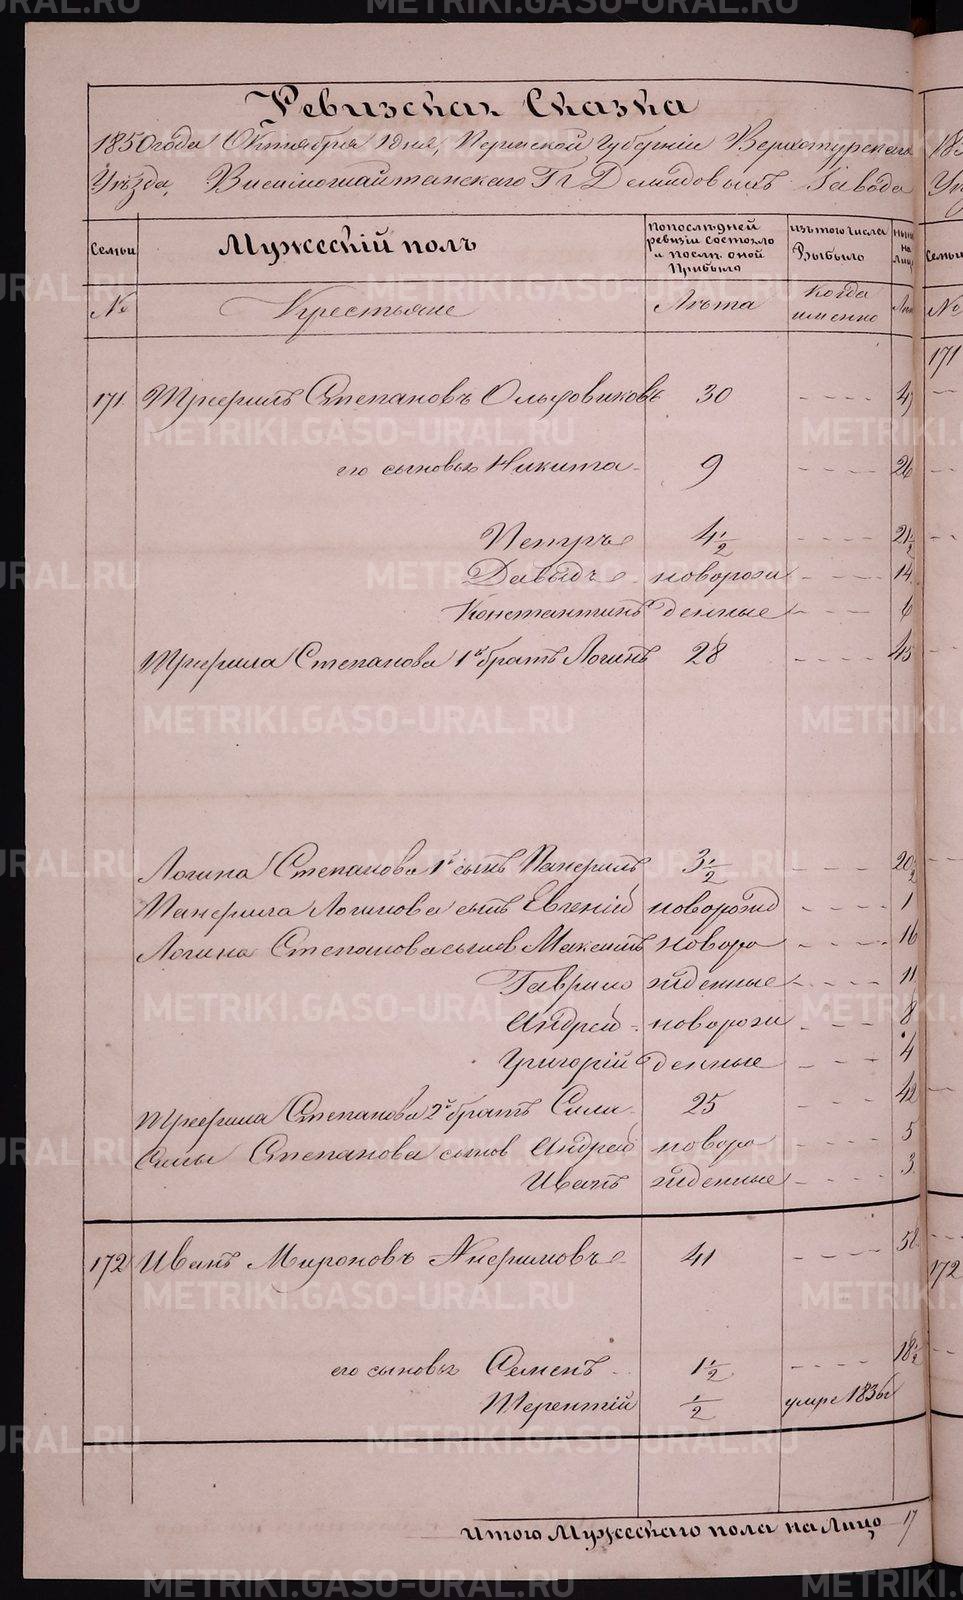 Ревизская Сказка
1850 года Октября 1 дня, Пермской Губерніи Верхотурскаго
Уѣзда, Висимошайтанскаго Гг Демидовыхъ Завода
Семьи
Мужескій полъ
по послѣдней ревизіи состояло и послѣ оной прибыло
изъ того числа Выбыло
ныне на лицо
№
Крестьяне
Лѣта
когда именно
Лѣта
171. Трифилъ Степановъ Ольховиковъ 30 47
его сыновья Никита 9 26
Петръ 4½ 21½
Давыдъ новорож 14
Константинъ денные 6
Трифила Степанова 1й братъ Логинъ 28 45
Логина Степанова 1й сынъ Панфилъ 3½ 20½
Панфила Логинова сынъ Евгеній новорожд 1
Логина Степанова сынов Максимъ новоро 16
Гаврило жденные 11
Андрей новорож 8
Григорій денные 4
Трифила Степанова 2й братъ Сила 25 42
Силы Степанова сынов Андрей новоро 5
Иванъ жденные 3
172 Иванъ Мироновъ Анфимовъ 41 58
его сыновья Семенъ 1½ 18½
Терентій ½ умре 1836
Итого Мужескаго пола на Лицо 17
185
Семьи
№
171
172
METRIKI.GASO-URAL.RU